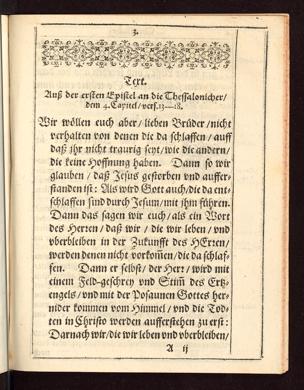 3.
Text.
Auß der ersten Epistel an die Thessalonicher/
dem 4. Capitel/ vers. 13—18.
Wir wöllen euch aber/ lieben Brüder/ nicht
verhalten von denen die da schlaffen/ auff
daß ihr nicht traurig seyt/ wie die andern/
die keine Hoffnung haben. Dann so wir
glauben/ daß Jesus gestorben vnd auffer-
standen ist: Als wird Gott auch/ die da ent-
schlaffen sind durch Jesum/ mit ihm führen.
Dann das sagen wir euch/ als ein Wort
des Herren/ daß wir/ die wir leben/ vnd
vberbleiben in der Zukunfft des HErren/
werden denen nicht vorkom̃en/ die da schlaf-
fen. Dann er selbst/ der Herr/ wird mit
einem Feld-geschrey vnd Stim̃ des Ertz-
engels/ vnd mit der Posaunen Gottes her-
nider kommen vom Himmel/ vnd die Tod-
ten in Christo werden aufferstehen zu erst:
Darnach wir/ die wir leben vnd vberbleiben/
A ij